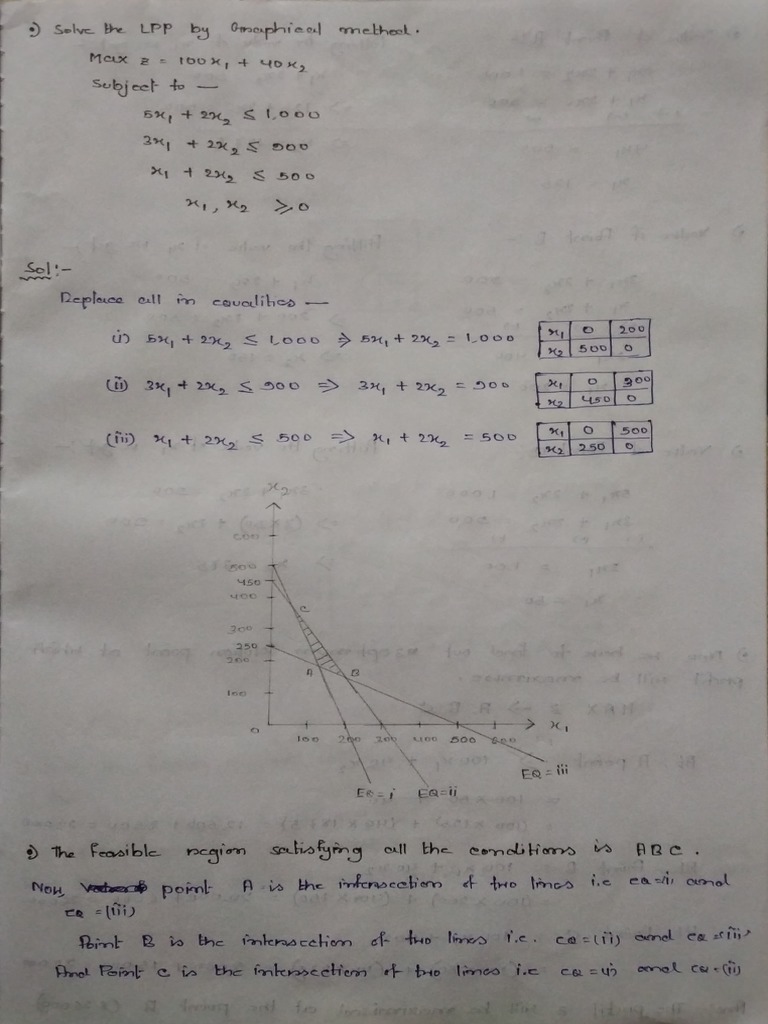 Solve the LPP by Graphical method.
Max z = 100x₁ + 40x₂
Subject to —
5x₁ + 2x₂ ≤ 1,000
3x₁ + 2x₂ ≤ 900
x₁ + 2x₂ ≤ 500
x₁, x₂ ≥ 0
Sol:-
Replace all in equalities —
(i) 5x₁ + 2x₂ ≤ 1,000 ⇒ 5x₁ + 2x₂ = 1,000
x₁ 0 200
x₂ 500 0
(ii) 3x₁ + 2x₂ ≤ 900 ⇒ 3x₁ + 2x₂ = 900
x₁ 0 300
x₂ 450 0
(iii) x₁ + 2x₂ ≤ 500 ⇒ x₁ + 2x₂ = 500
x₁ 0 500
x₂ 250 0
x₂
600
500
450
400
300
250
200
100
C
A B
0 100 200 300 400 500 600 x₁
EQ = iii
EQ = i EQ = ii
The feasible region satisfying all the conditions is ABC.
Now, point A is the intersection of two lines i.e eq = (i) and
eq = (iii)
Point B is the intersection of two lines i.e. eq = (ii) and eq = (iii)
And Point C is the intersection of two lines i.e eq = (i) and eq = (ii)